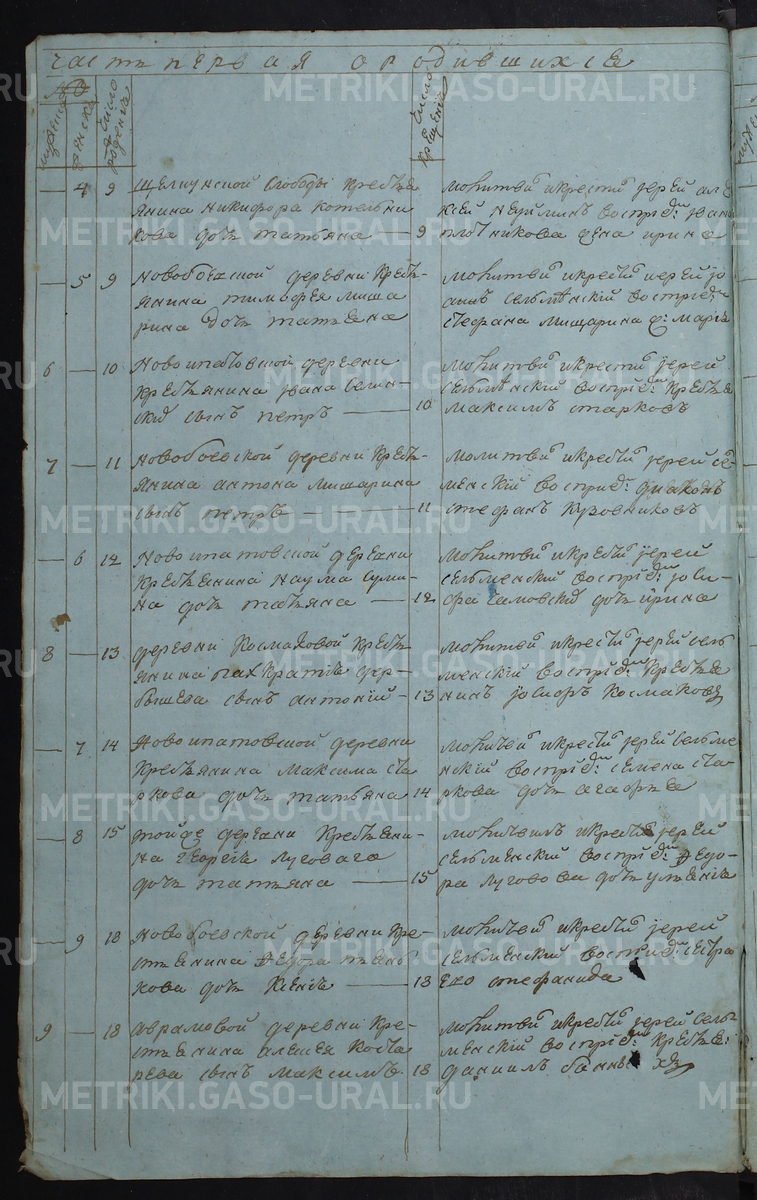 часть первая о родившихся
мужеска
женска
число рождения
число крещения
4 9 Щелкунской слободы кресть
янина Никифора Котельни
кова дочь татьяна — 9
молитвы и крестил іерей але
ксей воспріем: Ивана
плотникова жена ирина
5 9 Новобоевской деревни кресть-
янина тимофея миша
рина дочь татьяна
молитвы и крестил иерей Іо
аннъ сельменскій воспріем:
стефана Мишарина ж: Марья
6 10 Новоипатовской деревни
крестьянина Ивана
сынъ петръ — 10
молитвы и крестил іерей
сельменский воспріем: крестья
максимъ старковъ
7 11 Новобоевской деревни кресть-
янина антона мишарина
сынъ петръ — 11
молитвы и крестил іерей се-
менскій воспріем: диаконъ
стефанъ Кузовниковъ
6 12 Новоипатовской деревни
крестьянина Наума Сули
на дочь татьяна — 12
молитвы и крестил іерей
сельменский воспріем: Іоси-
фа дочь ирина
8 13 деревни Космаковой кресть
янина панкратья дер
бышева сынъ антоній - 13
молитвы и крестил іерей сель
менский воспріем: крестья
нинъ Іосифъ Космаковъ
7 14 Новоипатовской деревни
крестьянина Максима ста
ркова дочь татьяна 14
молитвы и крестил іерей сельме
нский воспріем: семена ста-
ркова дочь агафья
8 15 тойже деревни крестьяни-
на георгія луговаго
дочь татьяна — 15
молитвилъ и крестил іерей
сельменский воспріем: Федо-
ра лугового дочь
9 18 Новобоевской деревни кре-
стьянина Федора пьян
кова дочь Ксенія — 18
молитвы и крестил іерей
сельменский воспріем: сестра
его стефанида
9 18 Абрамовой деревни кре-
стьянина алексея Коста
рева сынъ Максимъ 18
молитвы и крестил іерей сель
менский воспріем: крестья:
даниилъ
METRIKI.GASO-URAL.RU